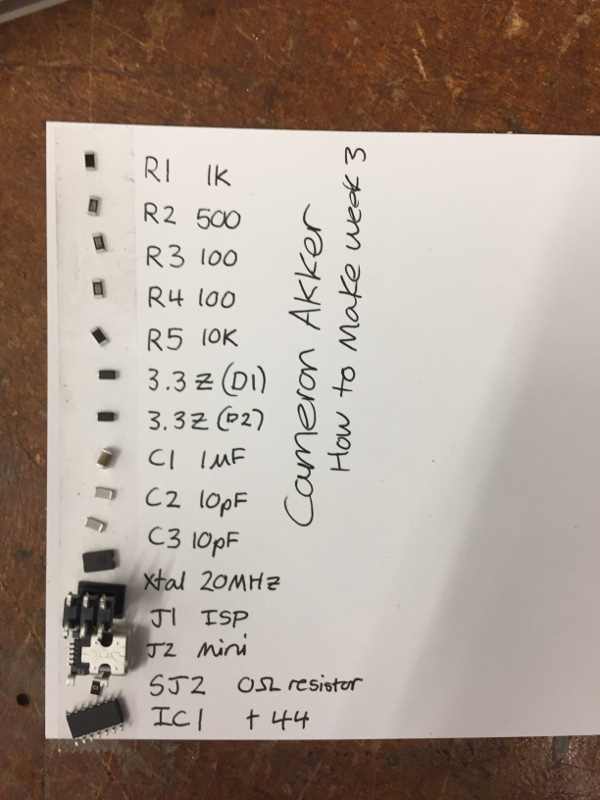 R1 1K
R2 500
R3 100
R4 100
R5 10K
3.3 Z (D1)
3.3 Z (D2)
C1 1µF
C2 10pF
C3 10pF
Xtal 20MHz
J1 ISP
J2 mini
SJ2 0Ω resistor
IC1 t44
Cameron Akker
How to Make week 3